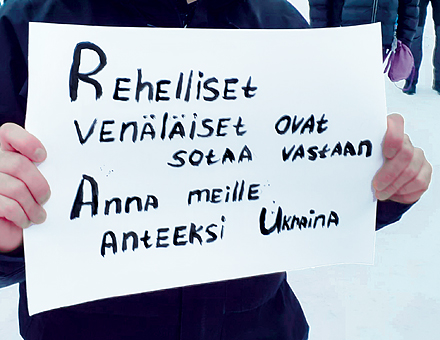 REHELLISET
VENÄLÄISET OVAT
SOTAA VASTAAN
ANNA MEILLE
ANTEEKSI UKRAINA